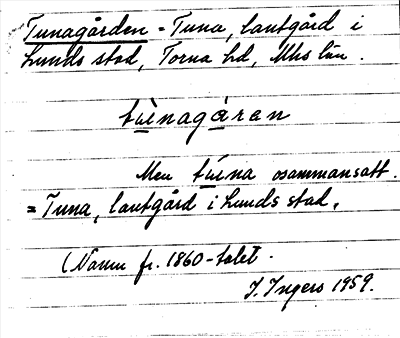 Tunagården = Tuna, lantgård i
Lunds stad, Torna hd, Mhs län.
tùnagå̀ren
Men tú̄na osammansatt.
= Tuna, lantgård i Lunds stad.
(Namn fr. 1860-talet.
I. Ingers 1959.